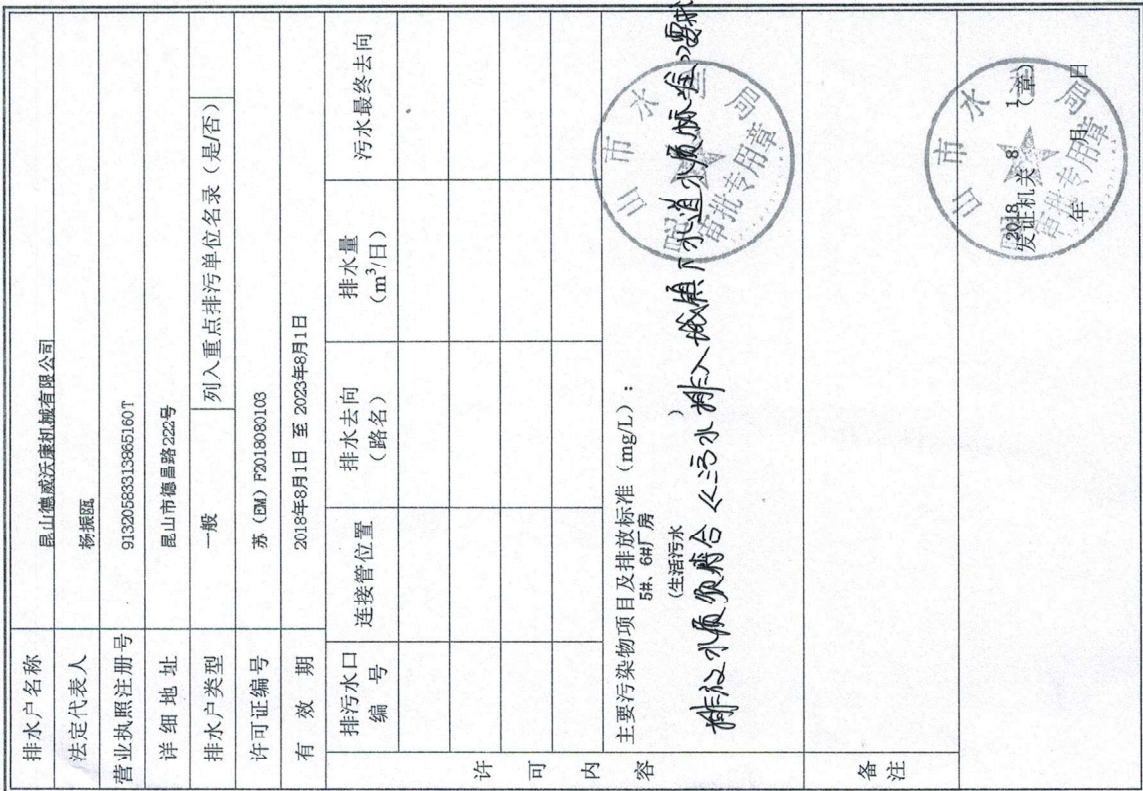 排水户名称 昆山德威沃康机械有限公司
法定代表人 杨振瓯
营业执照注册号 91320583313865160T
详细地址 昆山市德昌路222号
排水户类型 一般 列入重点排污单位名录（是/否）
许可证编号 苏（EM）F2018080103
有效期 2018年8月1日 至 2023年8月1日
排污水口编号 连接管位置 排水去向（路名） 排水量（m³/日） 污水最终去向
许可内容
主要污染物项目及排放标准（mg/L）：
5#、6#厂房
（生活污水）
排放水质须符合《污水排入城镇下水道水质标准》要求
昆山市水利局
审批专用章
备注
发证机关（章）
2018年8月1日
昆山市水利局
审批专用章